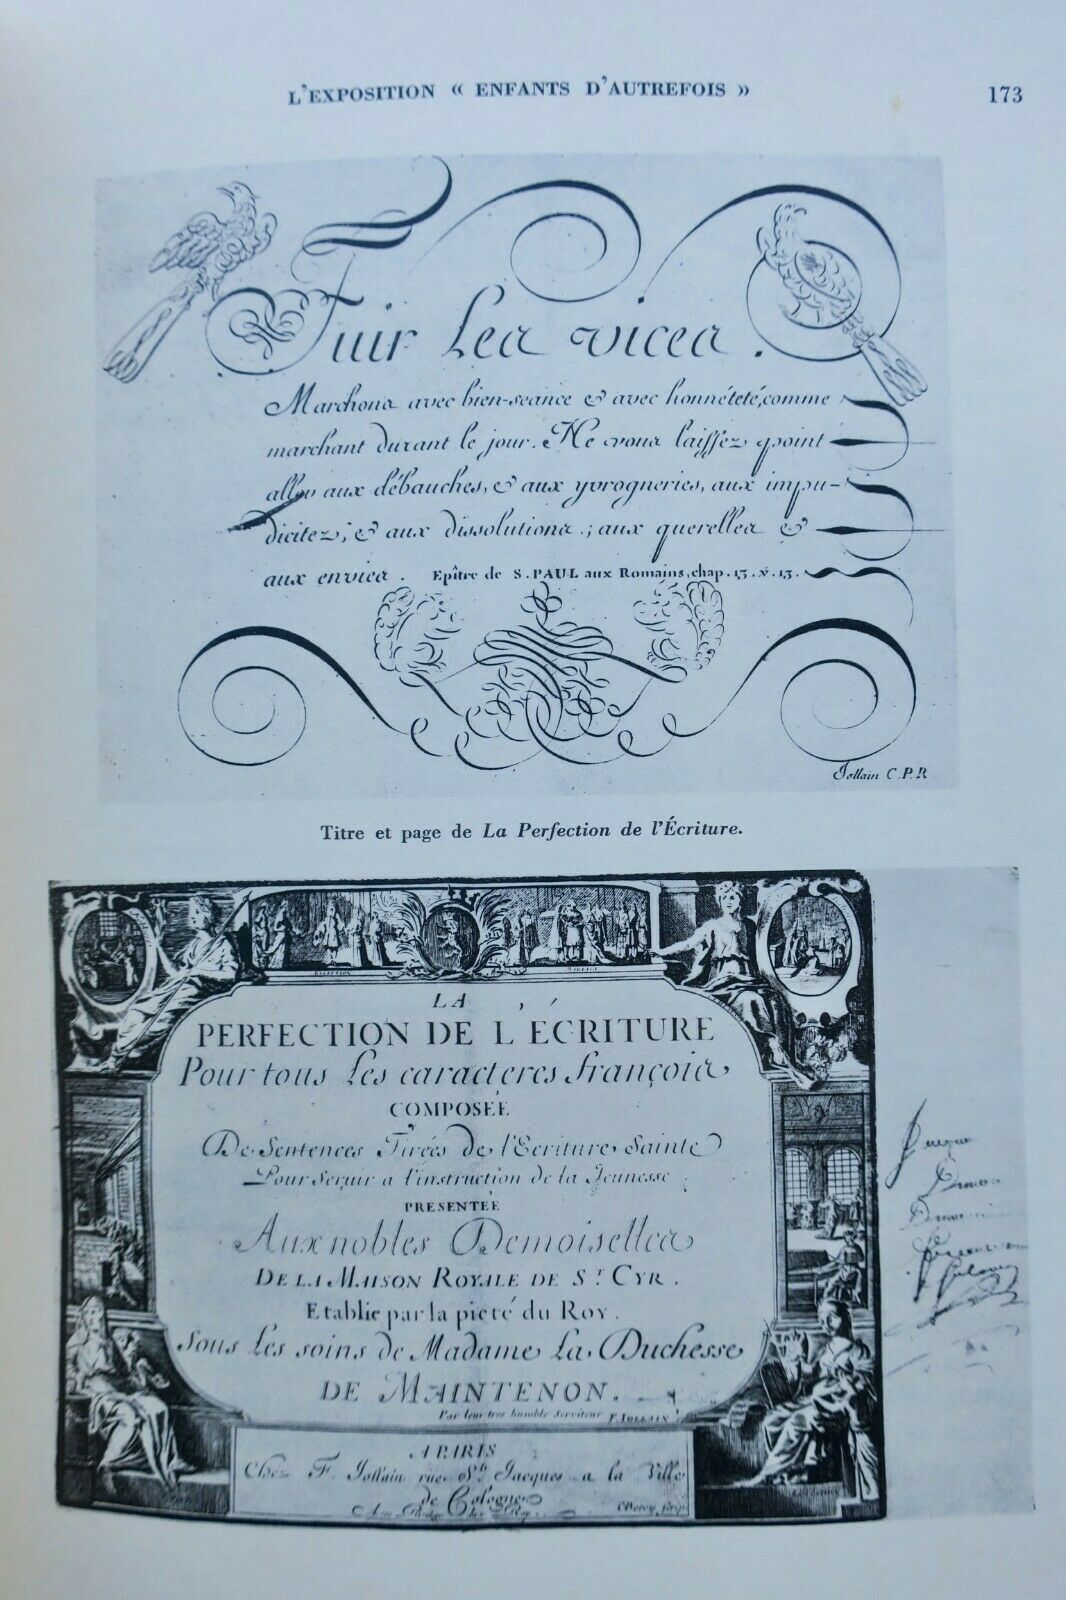 L'EXPOSITION « ENFANTS D'AUTREFOIS » 173
Fuir les vices.
Marchons avec bien-seance & avec honnêteté, comme
marchant durant le jour. Ne vous laissez point
aller aux débauches, & aux yvrogneries, aux impu-
dicitez, & aux dissolutions; aux querelles &
aux envies. Epître de S. PAUL aux Romains, chap. 13. v. 13.
Jollain C.P.R
Titre et page de La Perfection de l'Écriture.
LA
PERFECTION DE L'ÉCRITURE
Pour tous les caracteres françois
COMPOSÉE
De Sentences Tirées de l'Ecriture Sainte
Pour Seruir a l'instruction de la Jeunesse
PRESENTÉE
Aux nobles Demoiselles
DE LA MAISON ROYALE DE ST. CYR.
Etablie par la pieté du Roy.
Sous les soins de Madame la Duchesse
DE MAINTENON.
Par leur tres humble Serviteur F. JOLLAIN
A PARIS
Chez F. Jollain rüe St. Jacques a la Ville
de Cologne